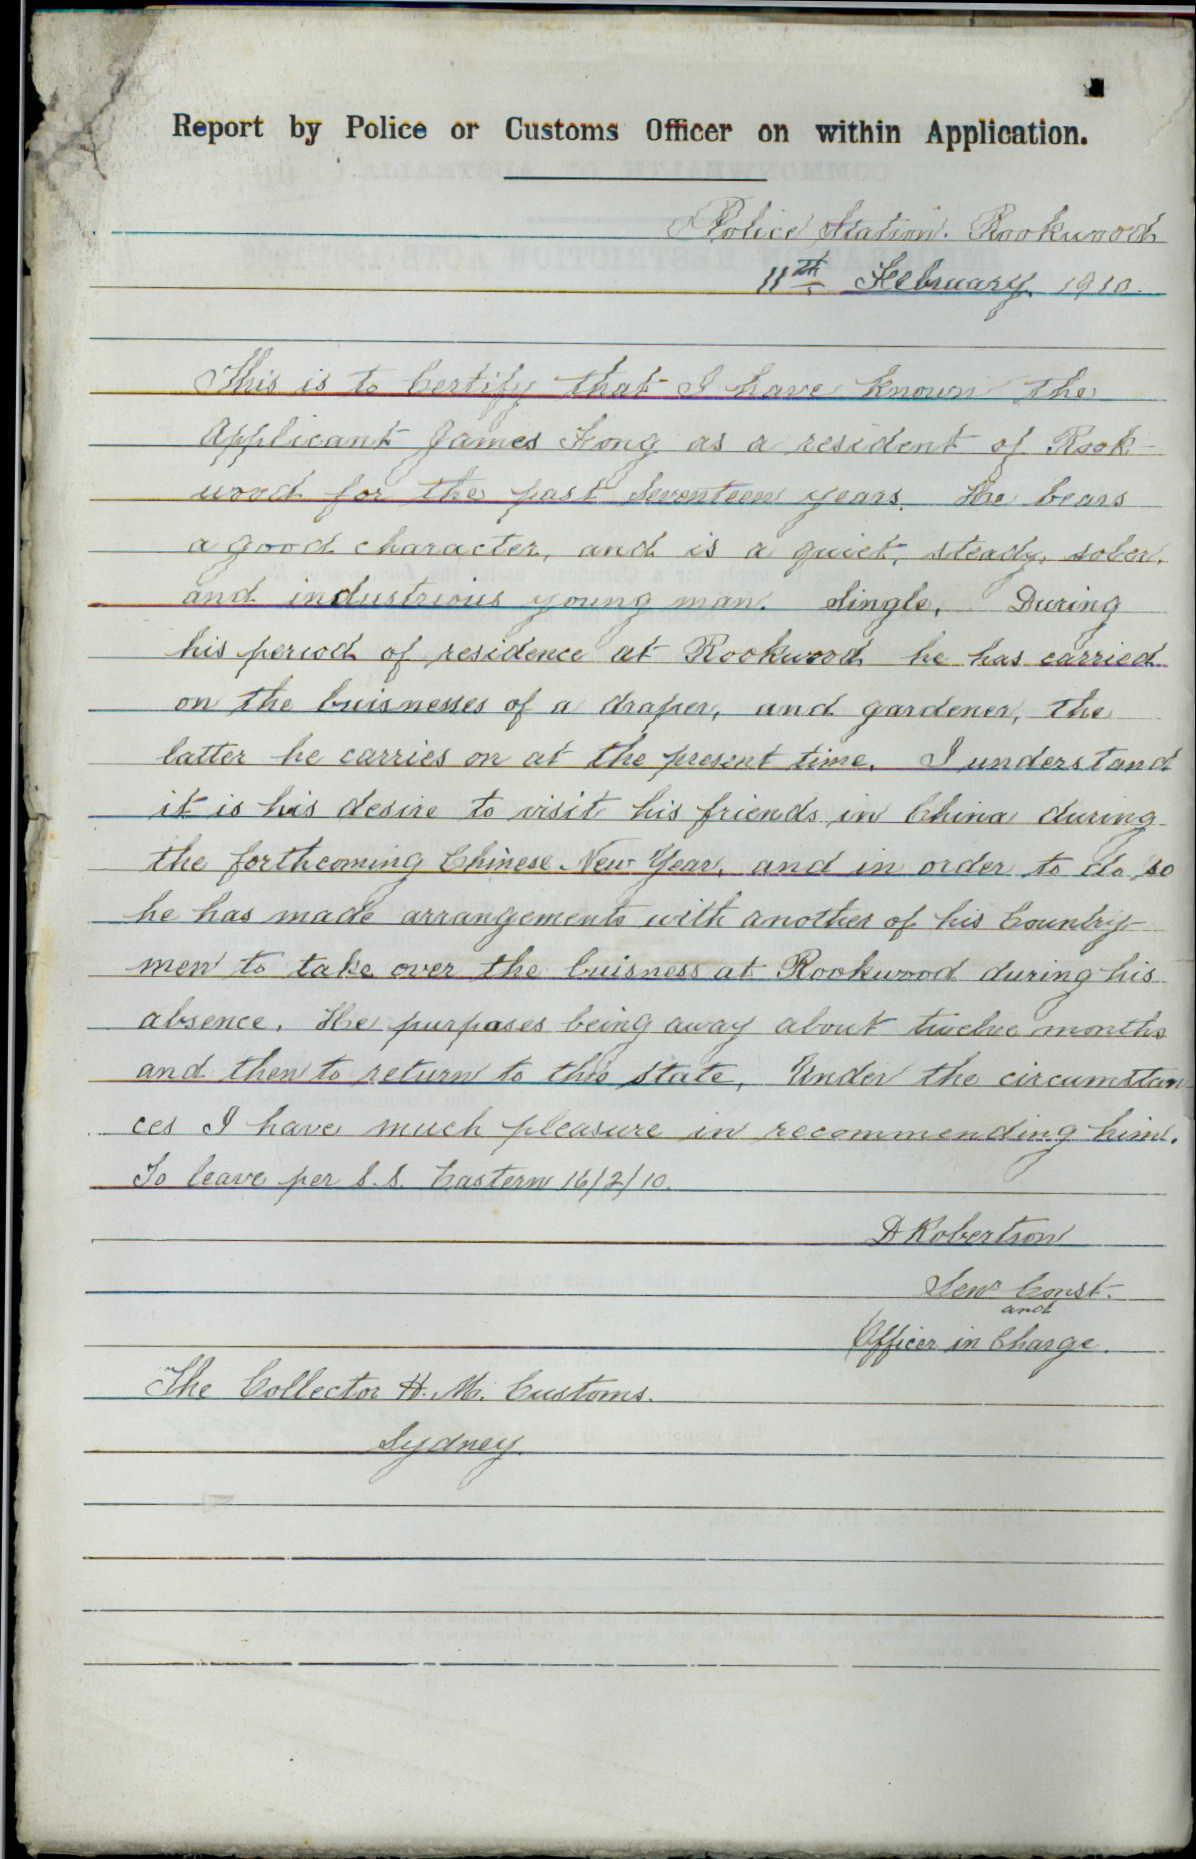 Report by Police or Customs Officer on within Application.
Police Station. Rookwood
11th February 1910.
This is to Certify that I have known the
Applicant James Hong as a resident of Rook-
wood for the past Seventeen years. He bears
a good character, and is a quiet, steady, sober,
and industrious young man. Single. During
his period of residence at Rookwood he has carried
on the buisnesses of a draper, and gardener, the
latter he carries on at the present time. I understand
it is his desire to visit his friends in China during
the forthcoming Chinese New Year, and in order to do so
he has made arrangements with another of his Country-
men to take over the buisness at Rookwood during his
absence. He purposes being away about twelve months
and then to return to this state, Under the circumstan
ces I have much pleasure in recommending him.
To leave per S.S. Eastern 16/2/10.
D Robertson
Senr Const.
and
Officer in Charge.
The Collector H. M. Customs.
Sydney